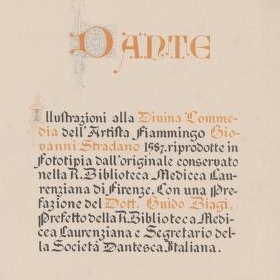 DANTE
Illustrazioni alla Divina Comme-
dia dell'Artista Fiammingo Gio-
vanni Stradano 1587. riprodotte in
Fototipia dall'originale conservato
nella R. Biblioteca Medicea Lau-
renziana di Firenze. Con una Pre-
fazione del Dott. Guido Biagi,
Prefetto della R. Biblioteca Medi-
cea Laurenziana e Segretario del-
la Società Dantesca Italiana.